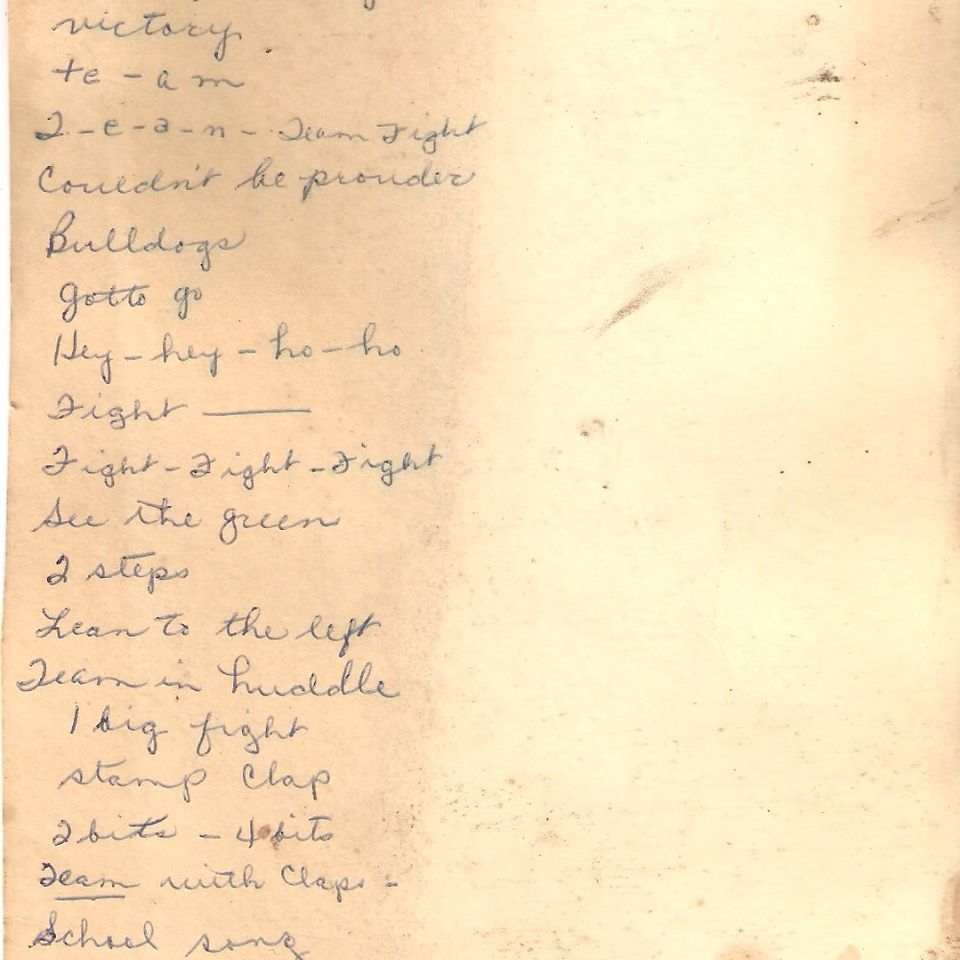 victory
te - a m
T - e - a - m - Team Fight
Couldn't be prouder
Bulldogs
Gotto go
Hey - hey - ho - ho
Fight ———
Fight - Fight - Fight
See the green
2 steps
Lean to the left
Team in huddle
1 big fight
stamp Clap
2 bits - 4 bits
Team with Claps -
School song